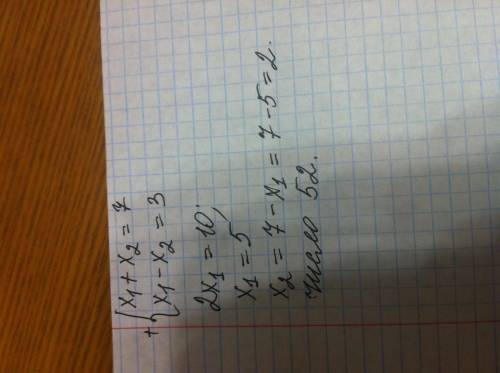 + { x₁ + x₂ = 7
x₁ - x₂ = 3
2x₁ = 10;
x₁ = 5
x₂ = 7 - x₁ = 7 - 5 = 2.
число 52.